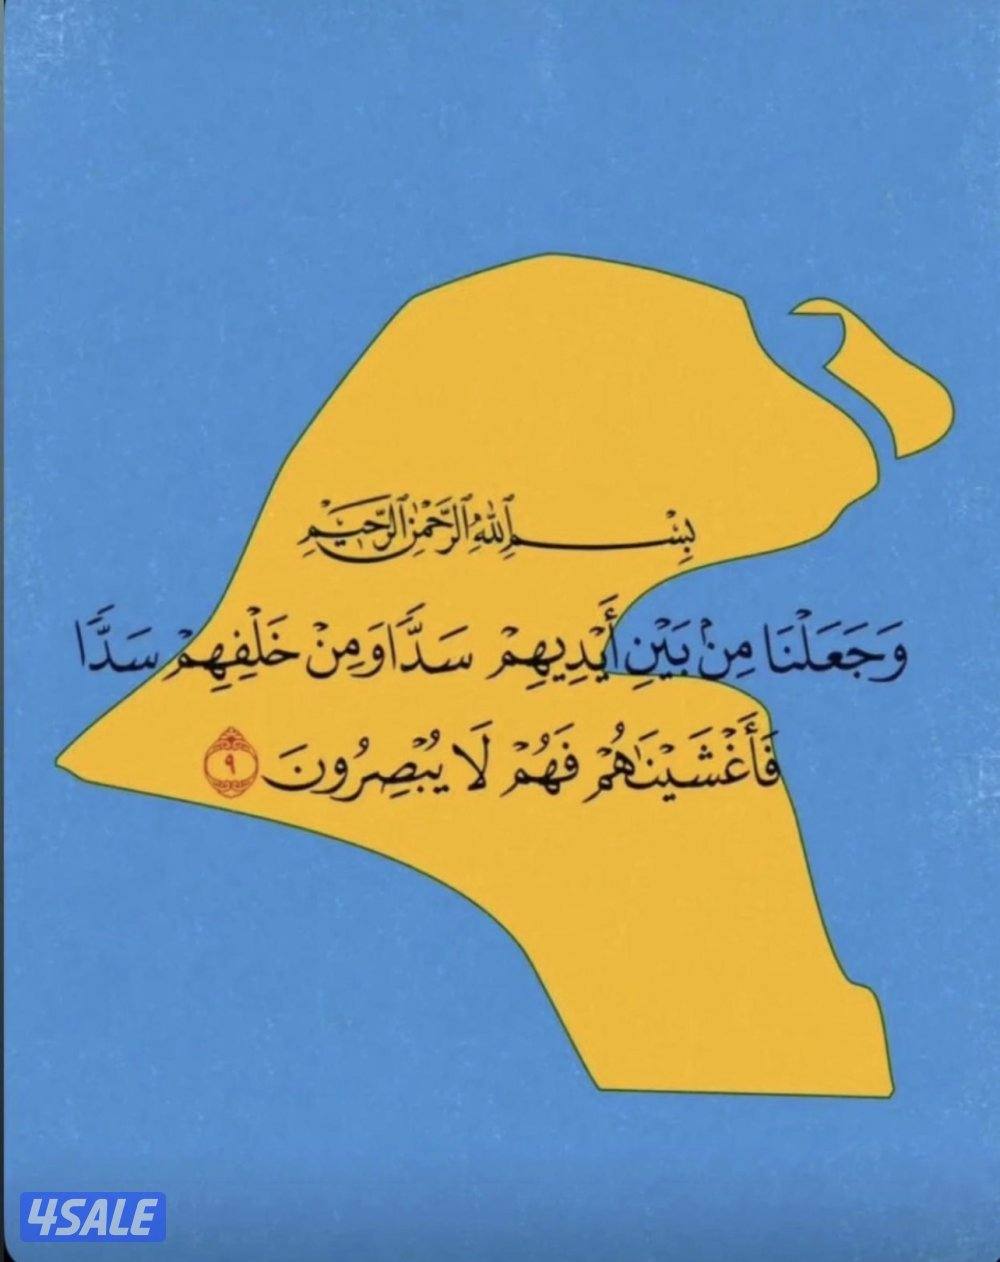 بِسْمِ ٱللَّهِ ٱلرَّحْمَٰنِ ٱلرَّحِيمِ
وَجَعَلْنَا مِنْ بَيْنِ أَيْدِيهِمْ سَدًّا وَمِنْ خَلْفِهِمْ سَدًّا
فَأَغْشَيْنَاهُمْ فَهُمْ لَا يُبْصِرُونَ ٩
4SALE